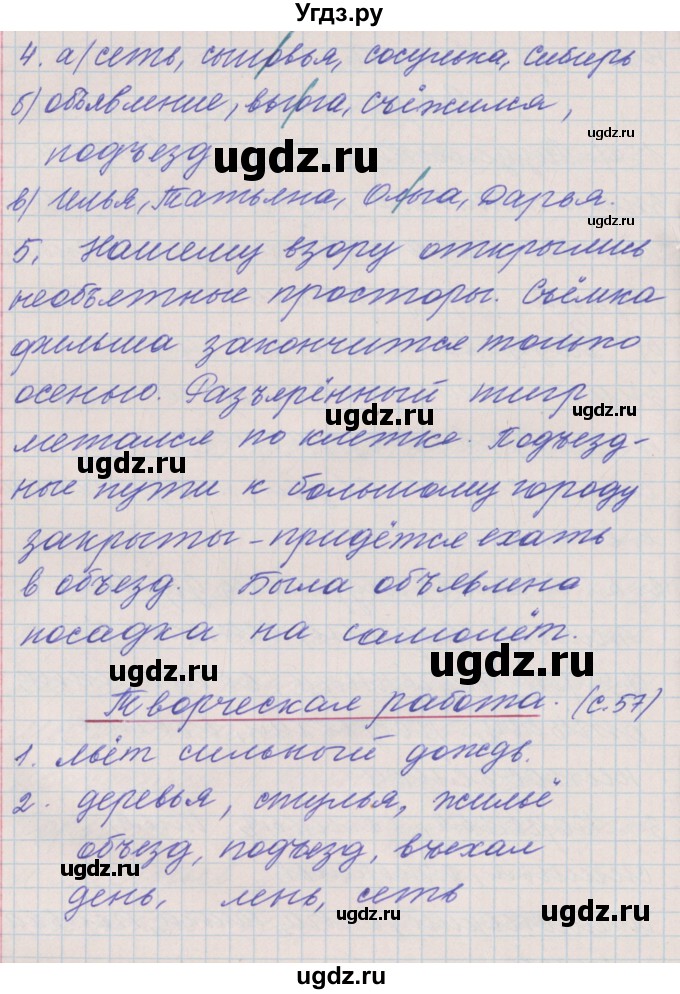 Угдз.ру
4. а) сеть, сыновья, сосулька, Сибирь
б) объявление, вьюга, съёжился,
ugdz.ru
подъезд
ugdz.ru
ugdz.ru
в) Илья, Татьяна, Ольга, Дарья.
ugdz.ru
5. Нашему взору открылись
необъятные просторы. Съёмка
фильма закончится только
осенью. Разъярённый тигр
ugdz.ru
метался по клетке. Подъезд-
ugdz.ru
ные пути к большому городу
закрыты - придётся ехать
ugdz.ru
в объезд. Была объявлена
посадка на самолёт.
ugdz.ru
ugdz.ru
Творческая работа. (с.57)
1. Льёт сильный дождь.
ugdz.ru
2. деревья, стулья, жильё
объезд, подъезд, въехал
ugdz.ru
день, лень, сеть
ugdz.ru
ugdz.ru
ugdz.ru